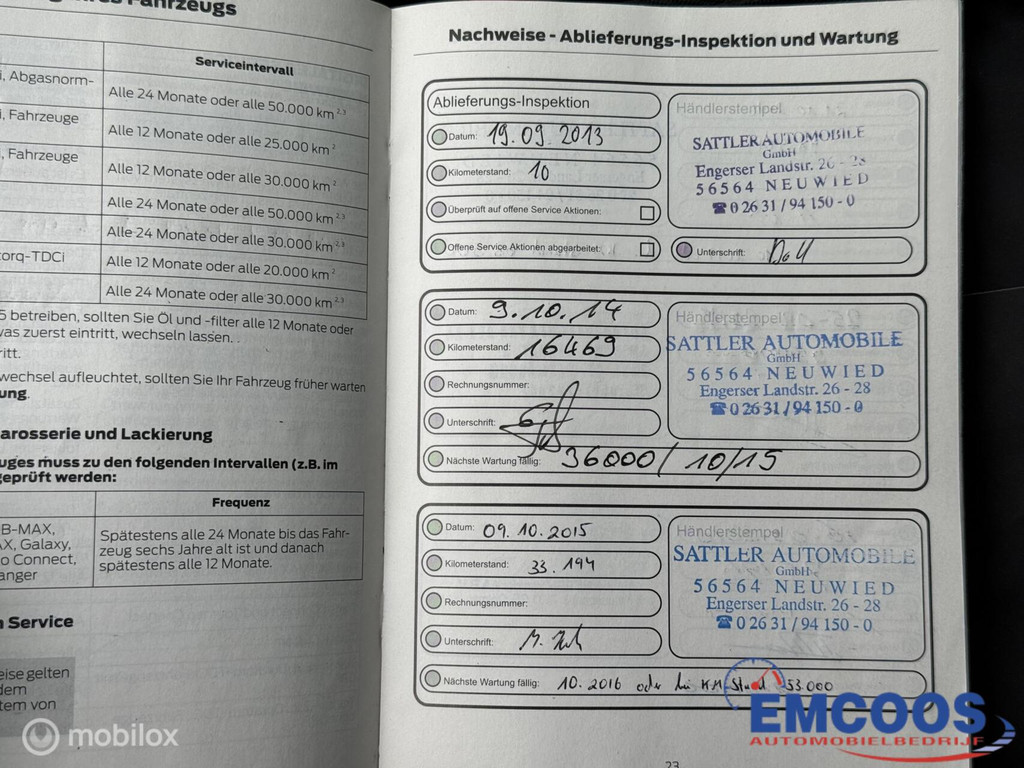 Fahrzeugs
Serviceintervall
i, Abgasnorm-
Alle 24 Monate oder alle 50.000 km 2,3
i, Fahrzeuge
Alle 12 Monate oder alle 25.000 km 2
i, Fahrzeuge
Alle 12 Monate oder alle 30.000 km 2
Alle 24 Monate oder alle 50.000 km 2,3
Alle 24 Monate oder alle 30.000 km 2,3
torq-TDCi
Alle 12 Monate oder alle 20.000 km 2
Alle 24 Monate oder alle 30.000 km 2,3
5 betreiben, sollten Sie Öl und -filter alle 12 Monate oder
was zuerst eintritt, wechseln lassen.
ritt.
wechsel aufleuchtet, sollten Sie Ihr Fahrzeug früher warten
ung.
arosserie und Lackierung
uges muss zu den folgenden Intervallen (z.B. im
geprüft werden:
Frequenz
B-MAX,
AX, Galaxy,
o Connect,
anger
Spätestens alle 24 Monate bis das Fahr-
zeug sechs Jahre alt ist und danach
spätestens alle 12 Monate.
n Service
eise gelten
dem
tem von
Nachweise - Ablieferungs-Inspektion und Wartung
Ablieferungs-Inspektion
Datum: 19.09.2013
Kilometerstand: 10
Überprüft auf offene Service Aktionen:
Offene Service Aktionen abgearbeitet:
Händlerstempel
SATTLER AUTOMOBILE
GmbH
Engerser Landstr. 26 - 28
56564 NEUWIED
☎ 0 26 31 / 94 150 - 0
Unterschrift:
Datum: 9.10.14
Kilometerstand: 16469
Rechnungsnummer:
Unterschrift:
Nächste Wartung fällig: 36000 / 10/15
Händlerstempel
SATTLER AUTOMOBILE
GmbH
56564 NEUWIED
Engerser Landstr. 26 - 28
☎ 0 26 31 / 94 150 - 0
Datum: 09.10.2015
Kilometerstand: 33.194
Rechnungsnummer:
Unterschrift:
Nächste Wartung fällig: 10.2016 oder bei KM-Stand 53.000
Händlerstempel
SATTLER AUTOMOBILE
GmbH
56564 NEUWIED
Engerser Landstr. 26 - 28
☎ 0 26 31 / 94 150 - 0
23
mobilox
EMCOOS
AUTOMOBIELBEDRIJF